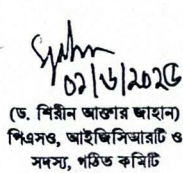 ০২/৬/২০২৫
(ড. শিরীন আক্তার জাহান)
পিএসও, আইজিসিআরটি ও
সদস্য, গঠিত কমিটি